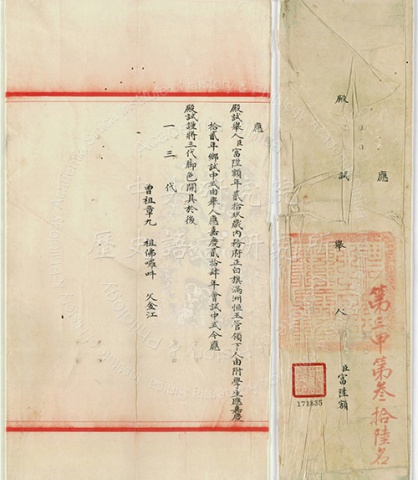 第三甲第叁拾陸名
應
殿試舉人臣富陞額
171835
應
殿試舉人臣富陞額年貳拾玖歲內務府正白旗滿洲恒玉管領下人由附學生應嘉慶
拾貳年鄉試中式由舉人應嘉慶貳拾肆年會試中式今應
殿試謹將三代腳色開具於後
一三代
曾祖章九 祖佛 父金江